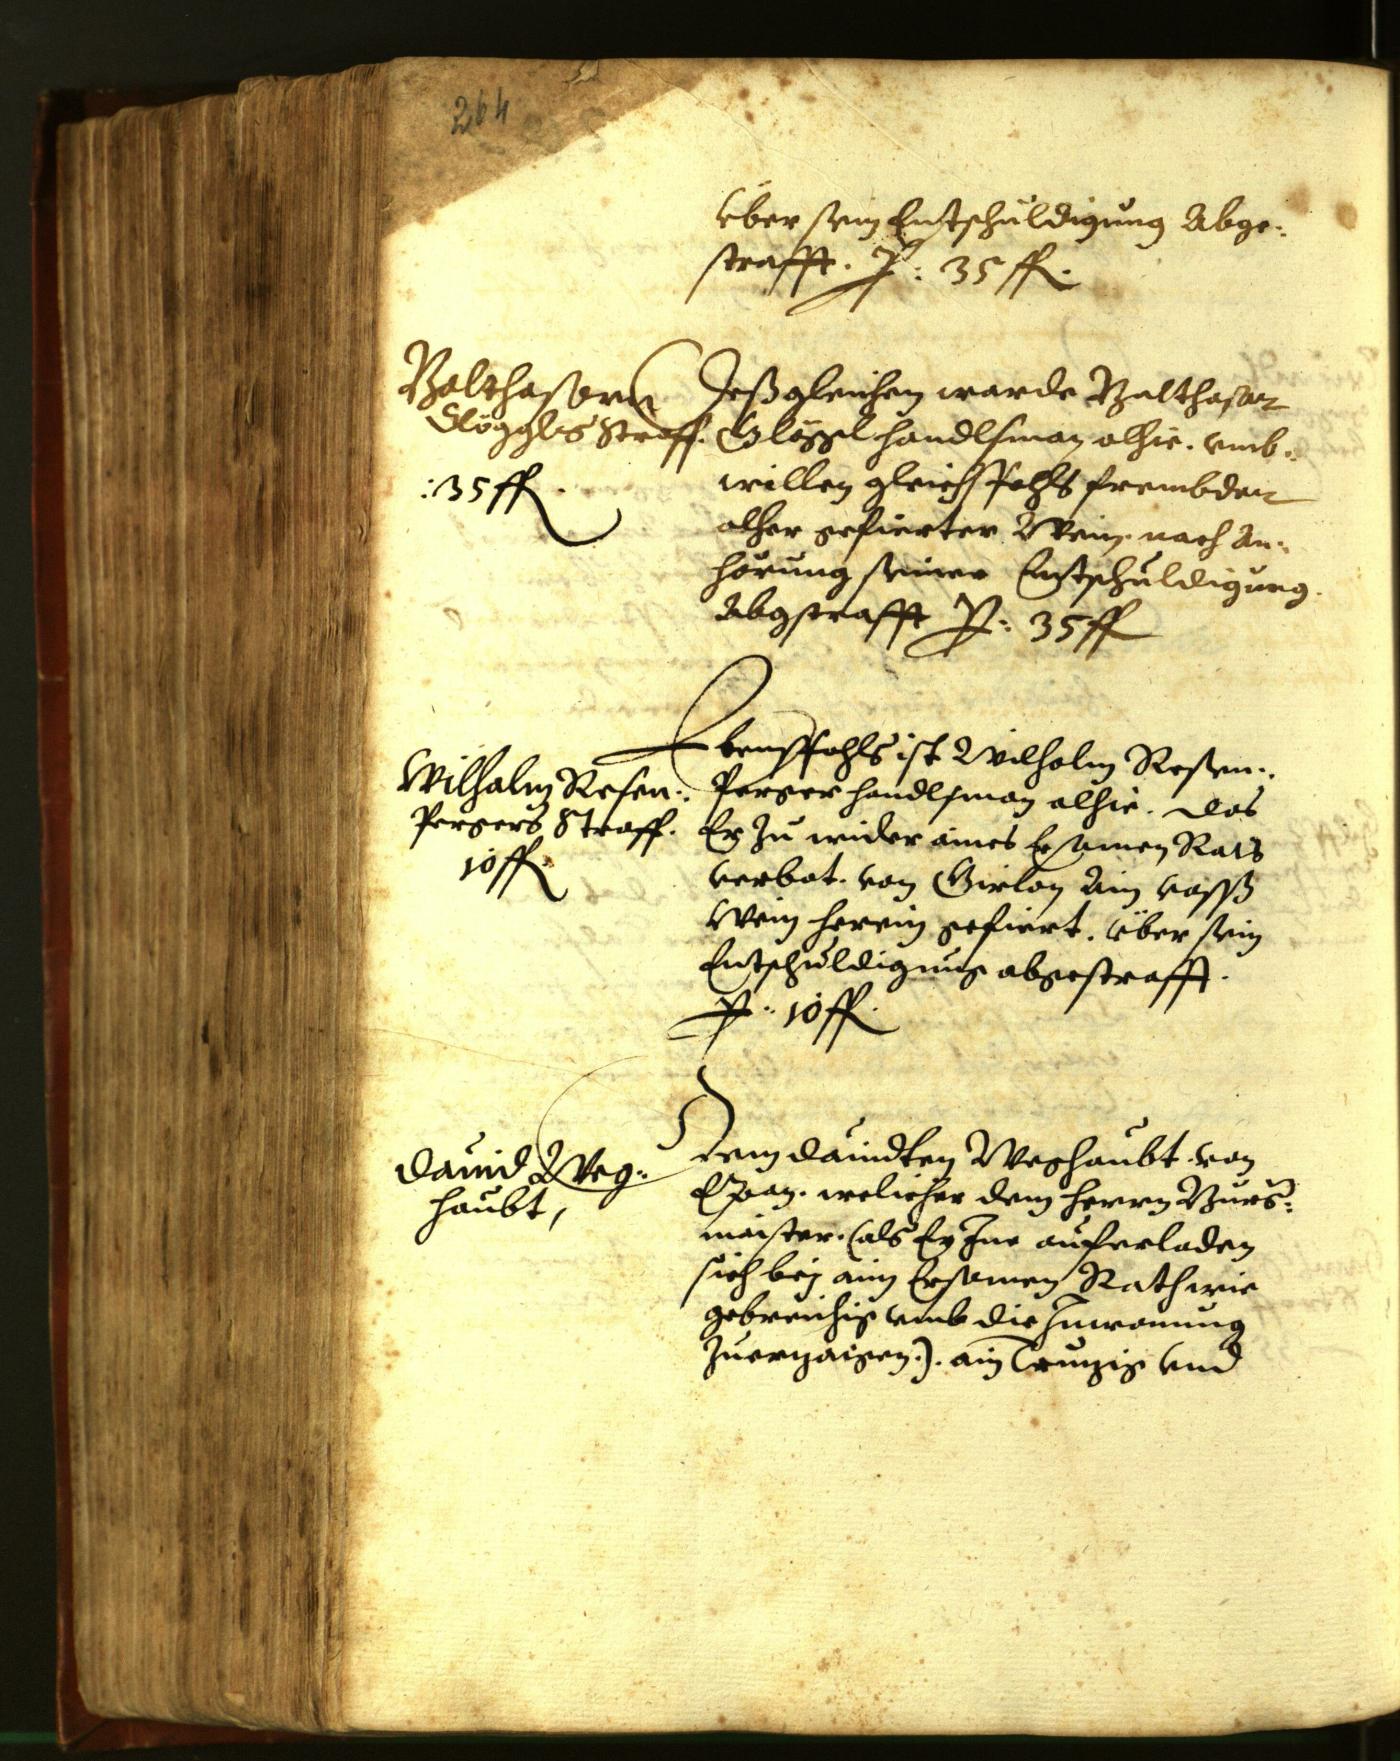 264
über sein Entschuldigung Abge:
strafft. P: 35 fl.
Balthasarn
Glögglß Straff.
:35 fl.
Deßgleichen warde Balthasar
Glöggl handlsman alhie. umb
willen gleichsfahls frembden
alher gefierter Wein. nach An:
hörung seiner Entschuldigung.
Abgstrafft P: 35 fl
Wilhalm Resen:
Pergers Straff.
10 fl.
Ebensfahls ist Wilhalm Resen:
Perger handlsman alhie. das
Er zu wider aines Ersamen Rats
verbot. von Girlan Ain vassß
Wein herein gefiert. über sein
Entschuldigung abgestrafft.
P: 10 fl.
Dauid Weg:
haubt,
Dem Dauidten Weghaubt von
Eppan. welicher dem herrn Burg:
maister. (als Er Ine auferladen
sich bej aim Ersamen Rath wie
gebreichig umb die Inwonung
Zuerzaigen.). ain Trunzig und